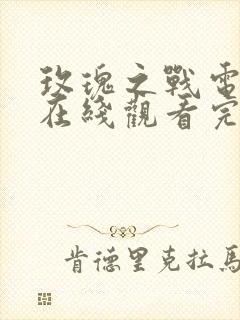 玫瑰之戰電
在綫觀看完
肯德里克拉馬